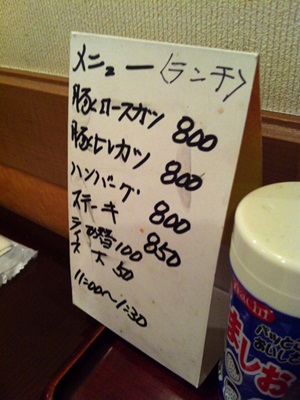 メニュー〈ランチ〉
豚ヒロースカツ 800
豚ヒレカツ 800
ハンバーグ 800
ステーキ 850
ライス お替 100
大 50
11:00〜1:30
パッと
おいし
ましお